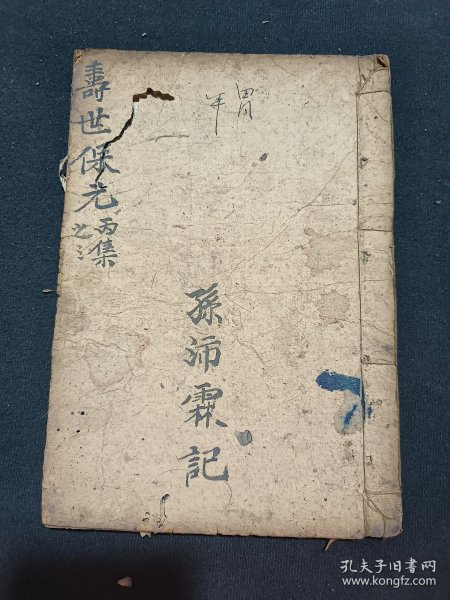 壽世保元
丙集
之三
胃
年
孫沛霖記
孔夫子旧书网
www.kongfz.com